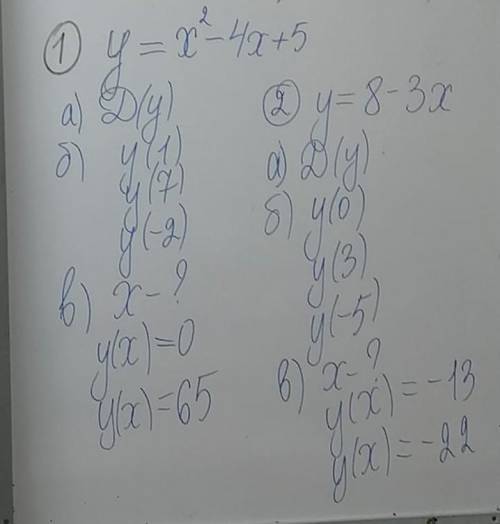 ① y = x² - 4x + 5
а) D(y)
б) y(1)
y(7)
y(-2)
в) x - ?
y(x) = 0
y(x) = 65
② y = 8 - 3x
а) D(y)
б) y(0)
y(3)
y(-5)
в) x - ?
y(x) = -13
y(x) = -22